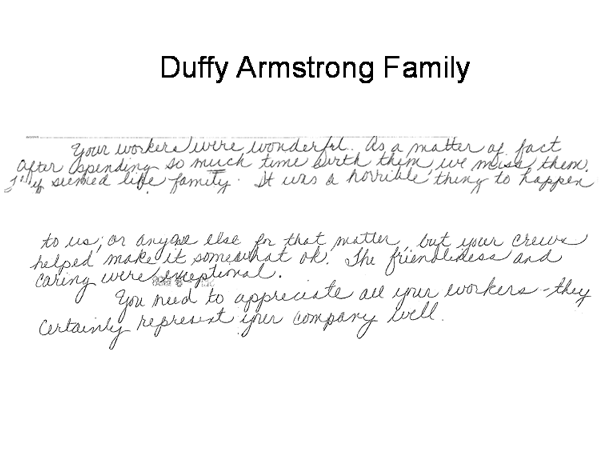 Duffy Armstrong Family
Your workers were wonderful. As a matter of fact
after spending so much time with them, we miss them.
seemed like family. It was a horrible thing to happen
to us, or anyone else for that matter, but your crews
helped make it somewhat ok. The friendliness and
caring were exceptional.
You need to appreciate all your workers - they
certainly represent your company well.